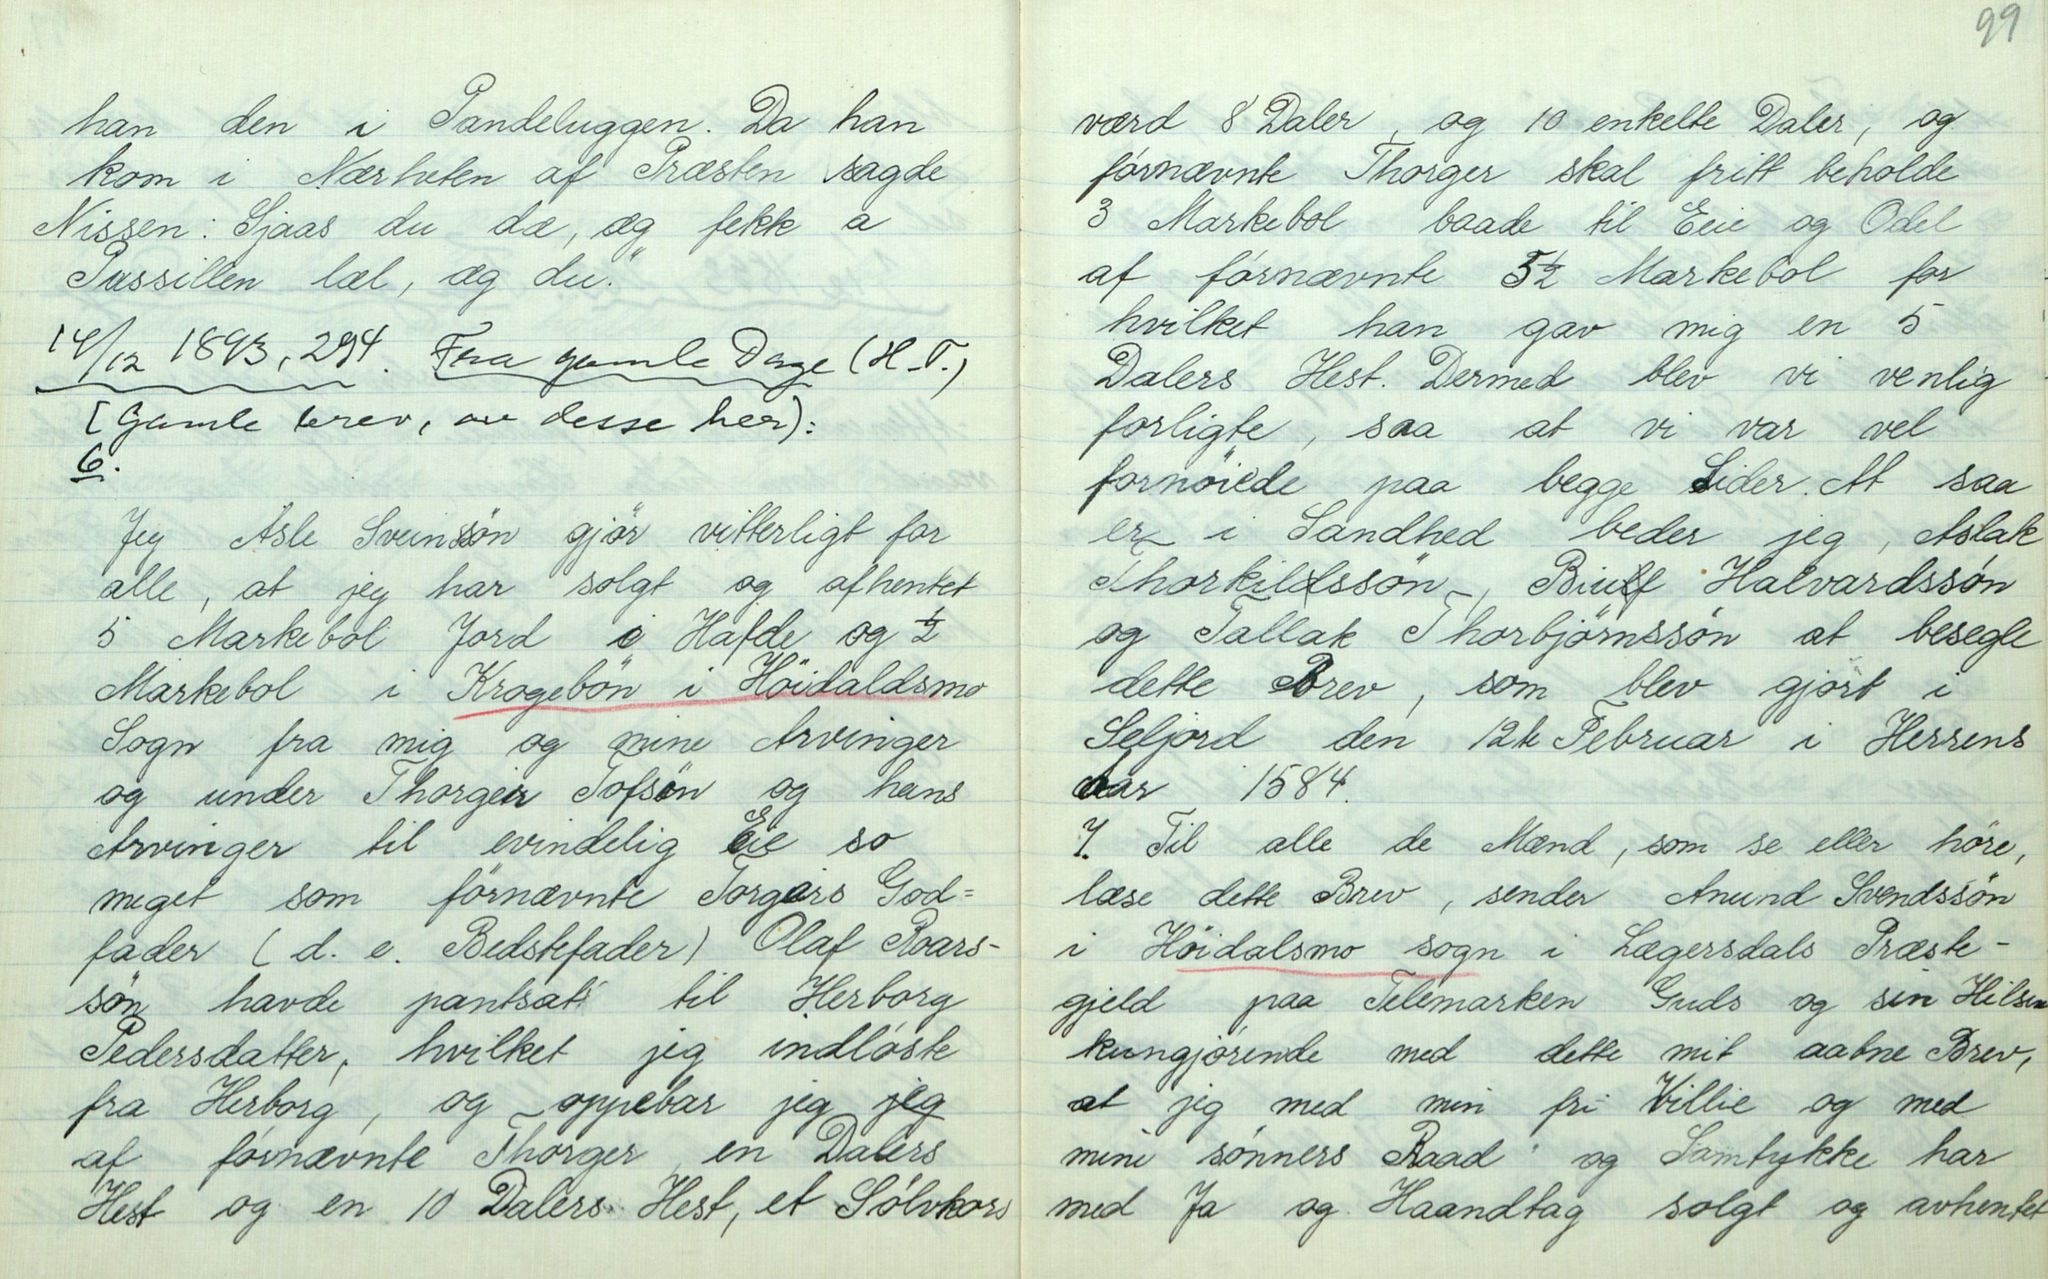 han den i Pandeluggen. Da han
kom i Nærheten af Præsten sagde
Nissen: Sjaas du dæ, æg fekk a
Pussillen læl, æg du."
14/12 1893, 294. Fraa gamle Dage (H.T.)
[Gamle brev, av desse her):
6.
Jeg Asle Sveinssön gjör vitterligt for
alle, at jeg har solgt og afhentet
5 Markebol Jord i Hafde og ½
Markebol i Krogebön i Höidaldsmo
Sogn fra mig og mine Arvinger
og under Thorgeir Tofsön og hans
Arvinger til evindelig Eie so
meget som förnævnte Torgeirs God=
fader (d. e. Bedstefader) Olaf Roars-
sön havde pantsat til Herborg
Pedersdatter, hvilket jeg indlöste
fra Herborg, og oppebar jeg jeg
af fornævnte Thorger en Dalers
Hest og en 10 Dalers Hest, et Sölvkors
99
værd 8 Daler, og 10 enkelte Daler, og
förnævnte Thorger skal fritt beholde
3 Markebol baade til Eeie og Odel
af förnævnte 5½ Markebol for
hvilket han gav mig en 5
Dalers Hest. Dermed blev vi venlig
forligte, saa at vi var vel
fornöiede paa begge Sider. At saa
er i Sandhed beder jeg, Aslak
Thorkildssön, Halvardssön
og Tallak Thorbjörnssön at besegle
dette Brev, som blev gjört i
Seljord den 12te Februar i Herrens
Aar 1584.
7. Til alle de Mænd, som se eller höre,
læse dette Brev, sender Anund Svendssön
i Höidalsmo sogn i Lægersdals Præste-
gjeld paa Telemarken Guds og sin Hilsen
kungjörende med dette mit aabne Brev,
at jeg med min fri Villie og med
mine sönners Raad og Samtykke har
med Ja og Haandtag solgt og avhentet